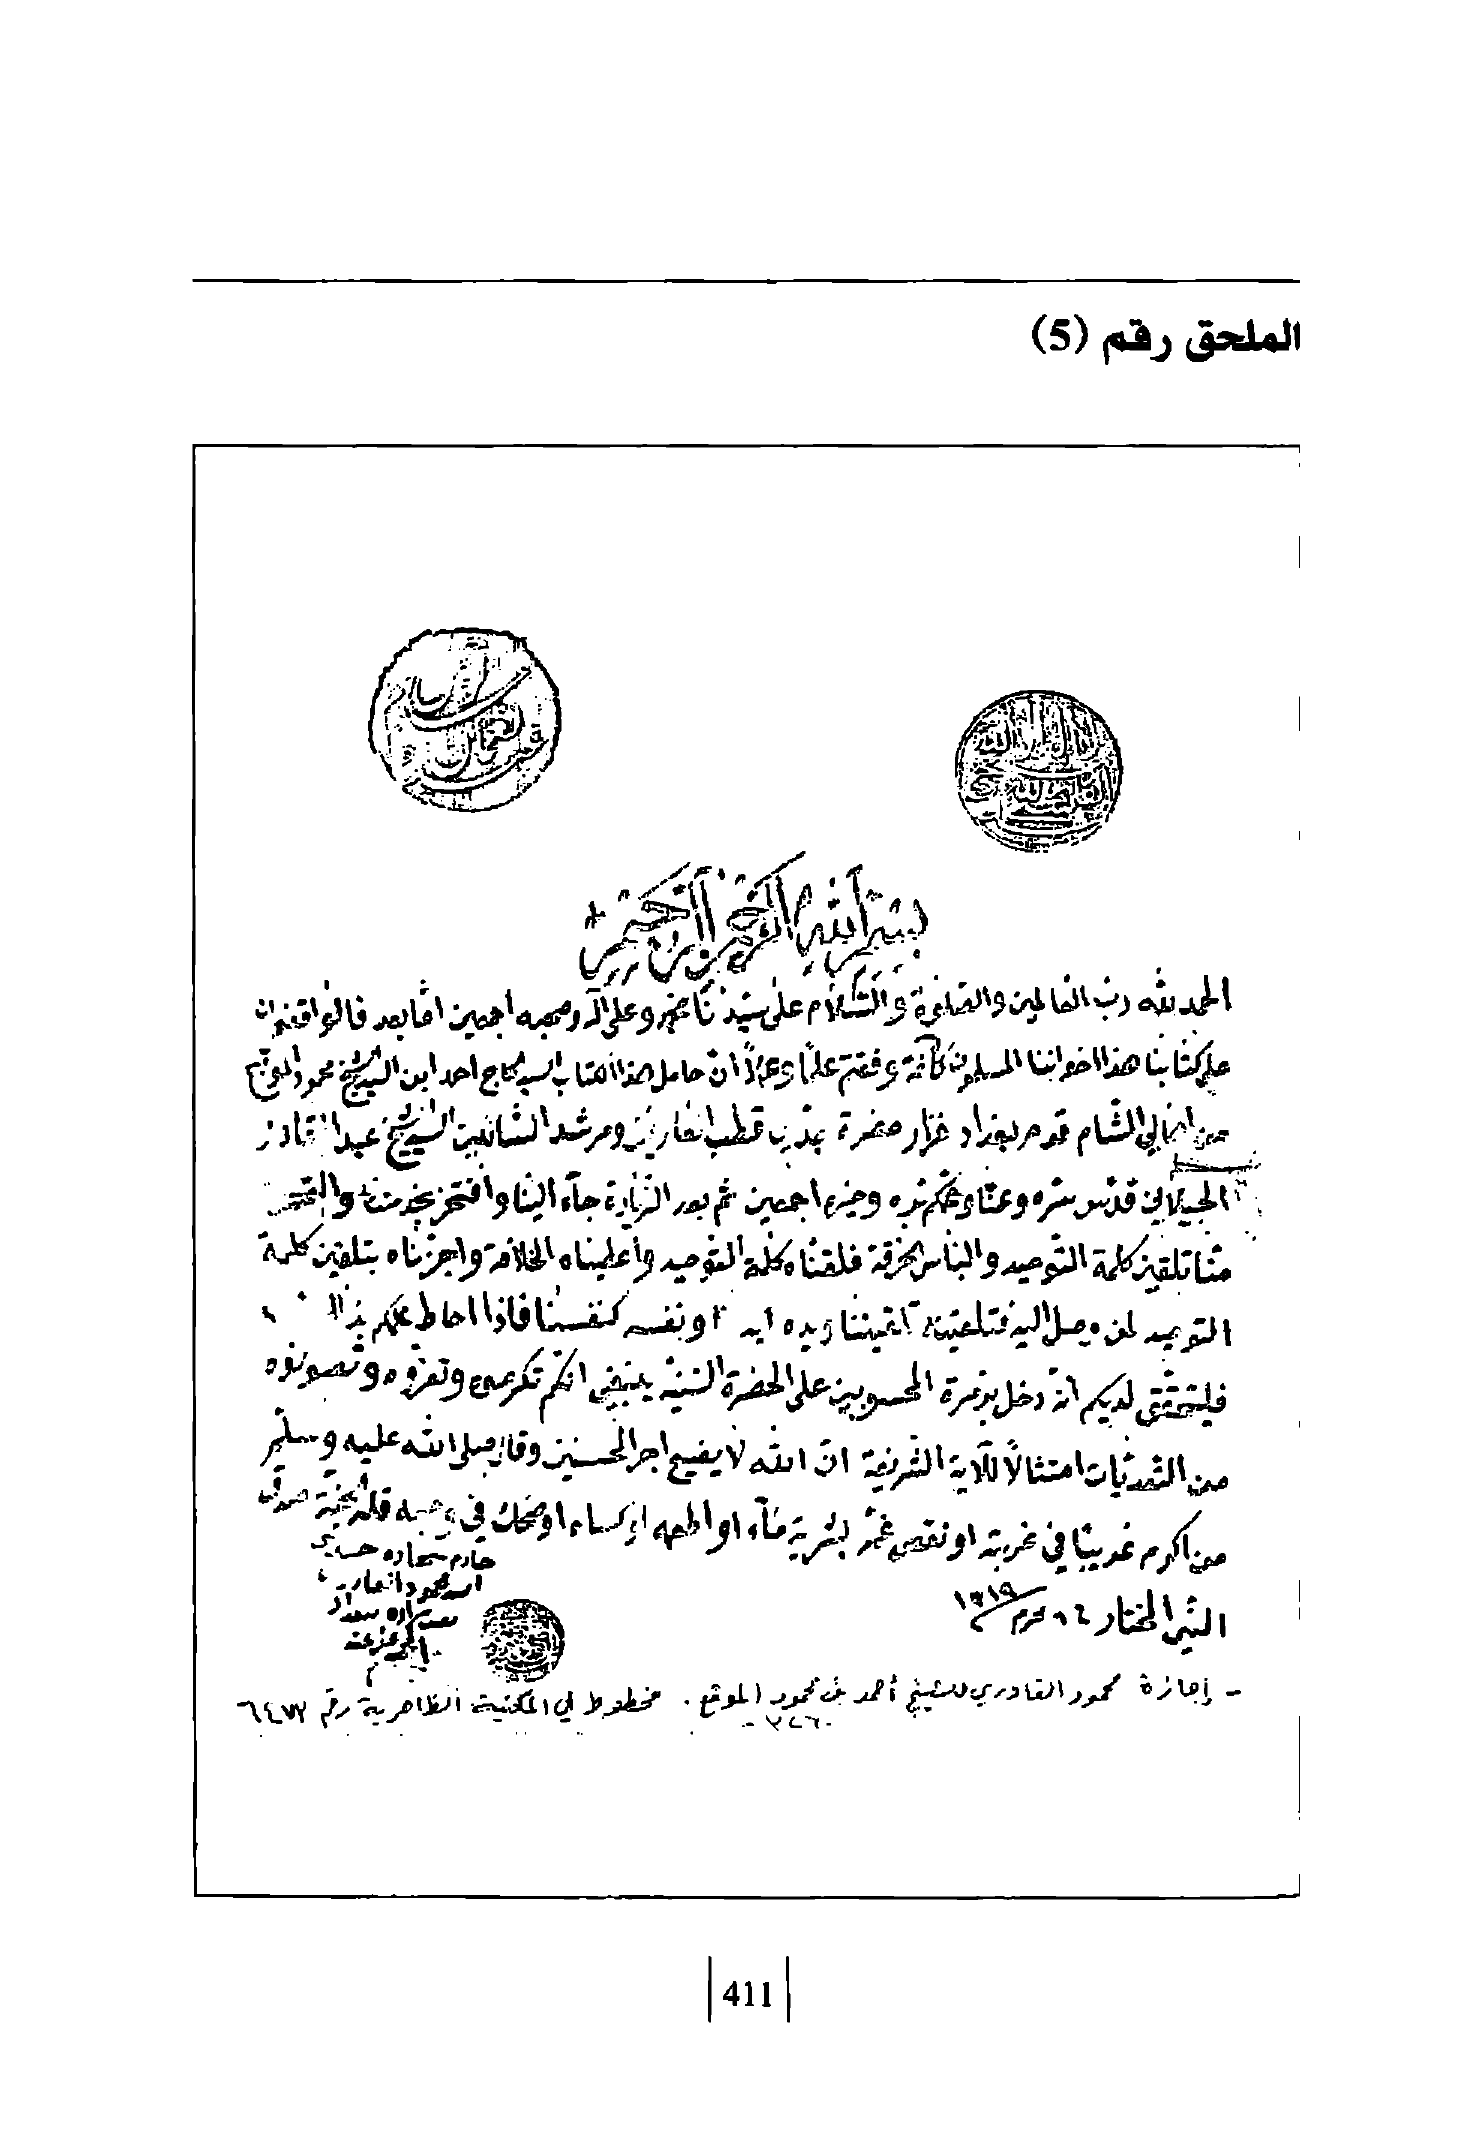 الملحق رقم (5)
بسم الله الرحمن الرحيم
الحمد لله رب العالمين والصلوة والسلام على سيدنا محمد وعلى آله وصحبه اجمعين اما بعد فالواقفون
على كتابنا هذا اخواننا المسلمون كافة وفقتم علما وعملا ان حامل هذا الكتاب السيد الحاج احمد ابن السيد الشيخ محمود
من اهالي الشام قدم بغداد فزار حضرة قطب العارفين ومرشد السالكين السيد الشيخ عبد القادر
الجيلاني قدس سره وعنا وعنكم بره وخيره اجمعين ثم بعد الزيارة جاء الينا وافتخر بخدمتنا والتمس
منا تلقين كلمة التوحيد والباس الخرقة فلقناه كلمة التوحيد وأعطيناه الخلافة واجزناه بتلقين كلمة
التوحيد لمن وصل اليه فتلقينه تلقيننا ويده ايدينا ونفسه كنفسنا فاذا احاط علمكم بذلك
فليتحقق لديكم انه دخل بزمرة المحسوبين على الحضرة السنية ينبغي انكم تكرموه وتعزوه وتصونوه
من التعديات امتثالا للآية الشريفة ان الله لا يضيع اجر المحسنين وقال صلى الله عليه وسلم
من اكرم غريبا في غربته او نفس غمه بشربة ماء او اطعمه او كساه او ضحك في وجهه فله الجنة صدق
النبي المختار ١٦ محرم ١٣١٩
خادم سجاده
السيد محمود
- إجازة محمود القادري للشيخ أحمد بن محمود الموقع . مخطوط في المكتبة الظاهرية رقم ٦٤٧٧
411